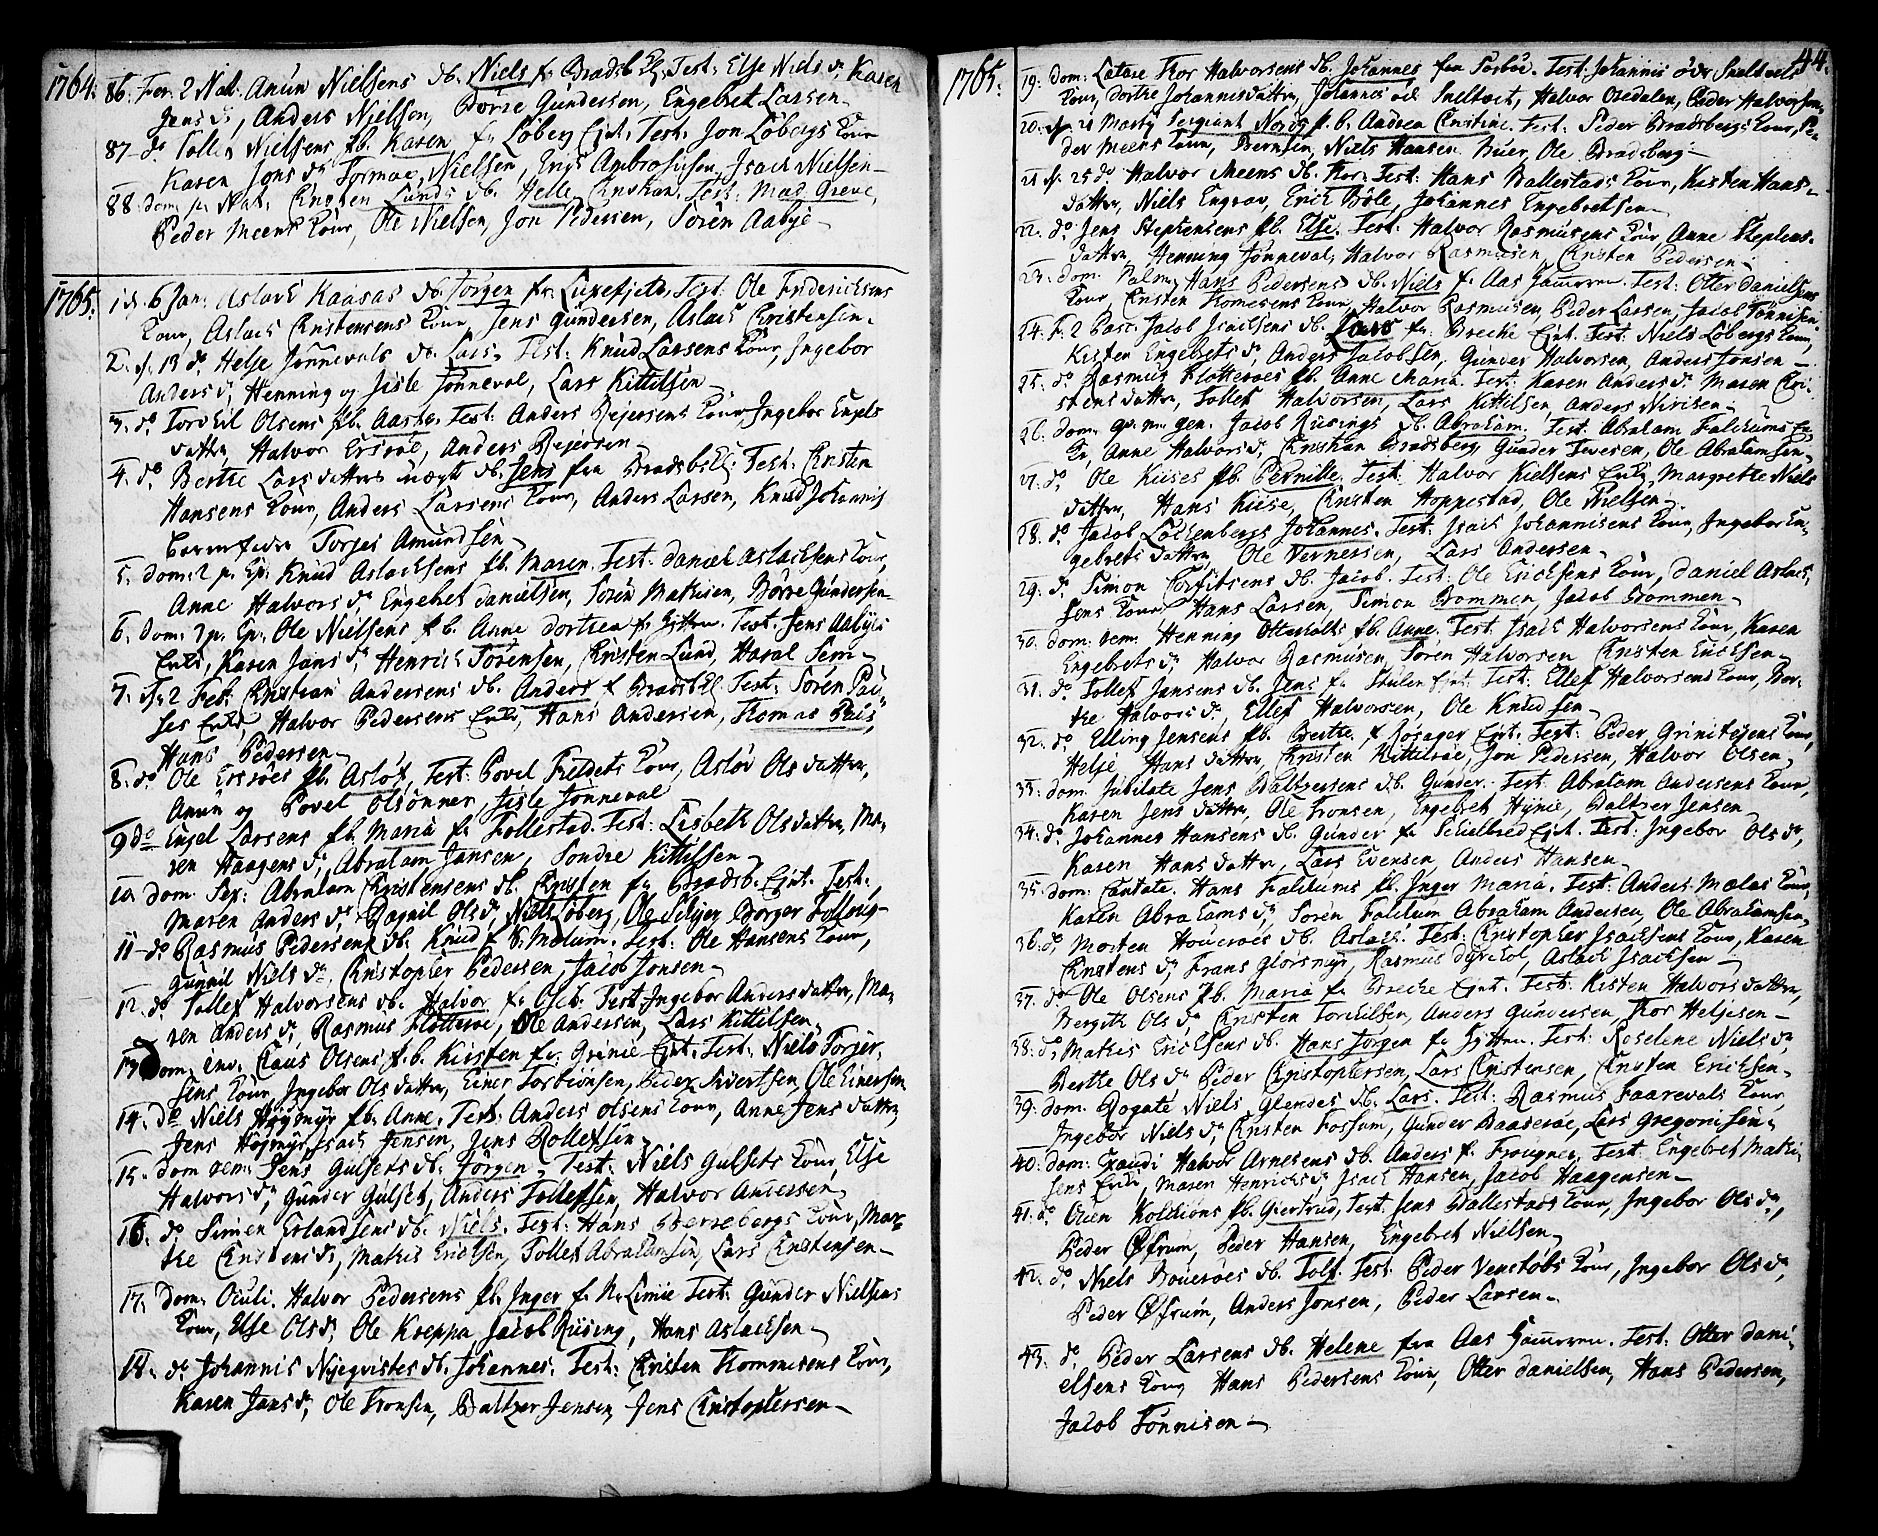 1764. 86. Fer. 2 Nat. Amun Nielsens db. Niels fr. Bradsb Ej. Test: Else Niels d. Karen
Jens d., Anders Nielsen, Børre Gundersen, Engebret Larsen.
87- do Tolles Nielsens fb. Karen fr. Løberg Ejnt. Test: Jon Løbergs Kone
Karen Jons dr Tormoe Nielsen, Enys Ambrosiusen, Isach Nielsen-
88. dom. p. Nat. Christen Lunds db. Helle Christian. Test: Mad. Greve,
Peder Meens Kone, Ole Nielsen, Jon Pedersen, Søren Aabye-
1765. 1 d. 6 Jan: Aslach Kaasas db. Jørgen fr. Luxefjeld, Test: Ole Fredericksens
Kone, Aslach Christensens Kone, Jens Gundersen, Aslach Christensen.
2. d. 13 do Helje Jønnevals db. Lars, Test: Knud Larsens Kone, Ingebor
Anders dr Henning og Jisle Jønneval, Lars Kittilsen-
3. do Torkil Olsens fb. Aashe. Test: Anders Rejersens Kone, Ingebor Engels
datter, Halvor Ersdal, Anders Rejersen-
4. do Berthe Larsdatters uægte db. Jens fra Bradsb Ej: Test: Christen
Hansens Kone, Anders Larsens Kone, Anders Larsen, Knud Johannis
barnefader Torjes Amundsen-
5. Dom: 2 p. Ep: Knud Aslachsens fb. Maren. Test: Daniel Aslachsens Kone,
Anne Halvors dr Engebret Danielsen, Søren Mathisen, Børre Gundersen
6. Dom. 3 p. Ep. Ole Nielsens fb. Anne Dorthea fr. Gitter. Test. Jens Aabyes
Enke, Karen Jans dr Henrich Sørensen, Christen Lund, Haral Sem-
7. d. 2 Feb: Christian Andersens db. Anders f Bradsb Ej. Test: Søren Pou-
ses Enke, Halvor Pedersens Enke, Hans Andersen, Thomas Pous,
Hans Pedersen-
8. do Ole Ersøes fb. Asløf, Test: Povel Fieldets Kone, Asløv Olsdatter,
Amun og Povel Olsønner, Jisle Jønneval
9 do Engel Larsens fb. Maria fr. Follestad. Test: Lisbeth Olsdatter, Ma-
ren Haagens dr Abraham Jansen, Søndre Kittilsen-
10 dom Sep: Abraham Christensens db. Christen fr Bradsb. Ejnt. Test:
Maren Anders dr Bognil Ols dr Niels Løberg, Ole Seljer, Børger Follrig-
11- do Rasmus Pedersens db. Knud f S. Molum. Test: Ole Hansens Kone,
Gunnil Niels dr Christopher Pedersen, Jacob Jonsen-
12. do Tollef Halvorsens db. Halvor fr. Oeb. Test: Ingebor Andersdatter, Ma-
ren Anders dr Rasmus Flotterøe, Ole Andersen, Lars Kittilsen
13 Dom: inv. Claus Olsens f.b. Kirsten fr. Grinie Ejnt. Test: Niels Torjer-
sens Kone, Ingebor Olsdatter, Einer Torbiønsen, Peder Sivertsen, Ole Einersen
14. do Niels Høgmyr fb. Anne. Test: Anders Olsens Kone, Anne Jensdatter,
Jens Høgmyr, Isach Jensen, Jens Rollefsen
15. dom rem: Jens Gulsets db. Jørgen, Test: Niels Gulsets Kone, Else
Halvors dr Gunder Gulset, Anders Tollefsen, Halvor Andersen,
16. do Simen Erlandsens db. Niels. Test: Hans Berrebergs Kone, Mar-
the Christens dr Mathis Erichsen, Tollef Abrahamsen, Lars Christensen-
17. Dom: Oculi. Halvor Pedersens fb. Inger f. N. Limie Test: Gunder Nielsens
Kone, Else Ols dr Ole Koeppa, Jacob Riising, Hans Aslachsen-
18. do Johannis Nyeqvistes db. Johannes. Test: Christen Thommesens Kone,
Karen Jans dr Ole Thronsen, Baltzer Jensen, Jens Christophersen-
44.
1765. 19. dom: Lætare Thor Halvorsens db. Johannes fra Forbøe. Test: Johannis Snelteds
Kone, Dorthe Johannisdatter, Johannes Sneltvet, Halvor Osedalen, Peder Halvorsen
20. d. 21 Marty Sergiant Nords f.b. Andrea Christine. Test: Peder Bradsbergs Kone, Pe-
der Meens Kone, Berntsen, Niels Hansen Buer, Ole Bradsberg-
21 d. 25 do Halvor Meens db. Thor. Test: Hans Ballestads Kone, Kirsten Hans-
datter, Niels Engrav, Erich Bøle, Johannes Engebretsen-
22. do Jens Stephensens fb. Else. Test: Halvor Rasmusens Kone, Anne Stephens-
datter, Henning Jønneval, Halvor Rasmusen, Christen Pedersen-
23. dom: Palm. Hans Pedersens db. Niels f. Aas Hammeren. Test: Otter Danielsens
Kone, Christen Thomesens Kone, Halvor Rasmusen, Peder Larsen, Jacob Tønnisen
24. F. 2 Pasc: Jacob Isachsens db. Lars fr: Breche Ejnt. Test: Niels Løbergs Kone,
Kirsten Engebrets dr Anders Jacobsen, Gunder Halvorsen, Anders Jonsen-
25. do Rasmus Flotterøes fb. Anne Maria. Test: Karen Anders dr Maren Chri-
stensdatter, Tollef Halvorsen, Lars Kittilsen, Anders Nirisen-
26. dom. qv. m. gen. Jacob Riisings db. Abraham. Test: Abraham Falchums En-
ke, Anne Halvors dr Christian Bradsberg, Gunder Tevesen, Ole Abrahamsen-
27. do Ole Kiises fb. Pernille. Test: Halvor Kielsens Enke, Margrethe Niels
datter, Hans Kiise, Christen Hoppestad, Ole Nielsen-
28. do Jacob Løchenbergs Johannes. Test: Isach Johannisens Kone, Ingebor En-
gebrets datter Ole Vernersen, Lars Andersen-
29. do Simon Torfitsens db. Jacob. Test: Ole Erichsens Kone, Daniel Aslach-
sens Kone Hans Larsen, Simon Brommen, Jacob Brommen-
30. dom: rem: Henning Otterholts fb. Anne. Test: Isach Halvorsens Kone, Karen
Engebrets dr Halvor Rasmusen, Søren Halvorsen Christen Erichsen-
31. do Tollef Jansens db. Jens fr. Stulen Ejnt. Test: Ellef Halvorsens Kone, Bor-
the Halvors dr Ellef Halvorsen, Ole Knudsen-
32. do Elling Jensens fb. Berthe f Rosager Ejnt. Test: Peder Grinitejens Kone,
Helje Hansdatter, Christen Kittilsøe, Jon Pedersen, Halvor Olsen-
33. dom: Jubilate Jens Baltzersens db. Gunder. Test: Abraham Andersens Kone,
Karen Jensdatter, Ole Thronsen, Engebret Hynie, Baltzer Jensen-
34. do Johannes Hansens db. Gunder fr Schielbred Ejnt. Test: Ingebor Ols dr,
Karen Hansdatter, Lars Evensen, Anders Hansen-
35. dom: Cantate. Hans Falchums fb. Inger Maria. Test: Anders Mælas Kone,
Karen Abrahams dr Søren Falchum Abraham Andersen, Ole Abrahamsen-
36. do Morten Houerøes db. Aslach. Test: Christopher Isachsens Kone, Karen
Christens dr Frans Glorsmyr, Rasmus Dyrehol, Aslach Isachsen-
37. do Ole Olsens fb. Maria fr Breche Ejnt. Test: Kirsten Halvorsdatter,
Bergith Ols dr Christen Torchilsen, Anders Gundersen, Thor Heljesen-
38. do Mathis Erichsens db. Hans Jørgen fr Gitter. Test: Roselene Niels dr
Berthe Ols dr Peder Christophersen, Lars Christensen, Christen Erichsen-
39. dom. Rogate Niels Glendes db. Lars. Test: Rasmus Faarevals Kone,
Ingebor Niels dr Christen Fossum, Gunder Baaserøe, Lars Gregorisen-
40. dom: Exaudi Halvor Arnesens db. Anders f. Frougner. Test: Engebret Mathi-
sens Enke, Maren Henrichs dr Isach Hansen, Jacob Haagensen-
41. do Oven Kolkiøns fb. Giertrud, Test: Jens Ballestads Kone, Ingebor Ols dr,
Peder Øfrum, Peder Hansen, Engebret Nielsen-
42. do Niels Bouerøes db. Tolf. Test: Peder Venstøbs Kone, Ingebor Ols dr
Peder Øfrum, Anders Jonsen, Peder Larsen-
43. do Peder Larsens db. Helene fra Aas Hammeren. Test: Otter Dani-
elsens Kone Hans Pedersens Kone, Otter Danielsen, Hans Pedersen,
Jacob Tønnisen-